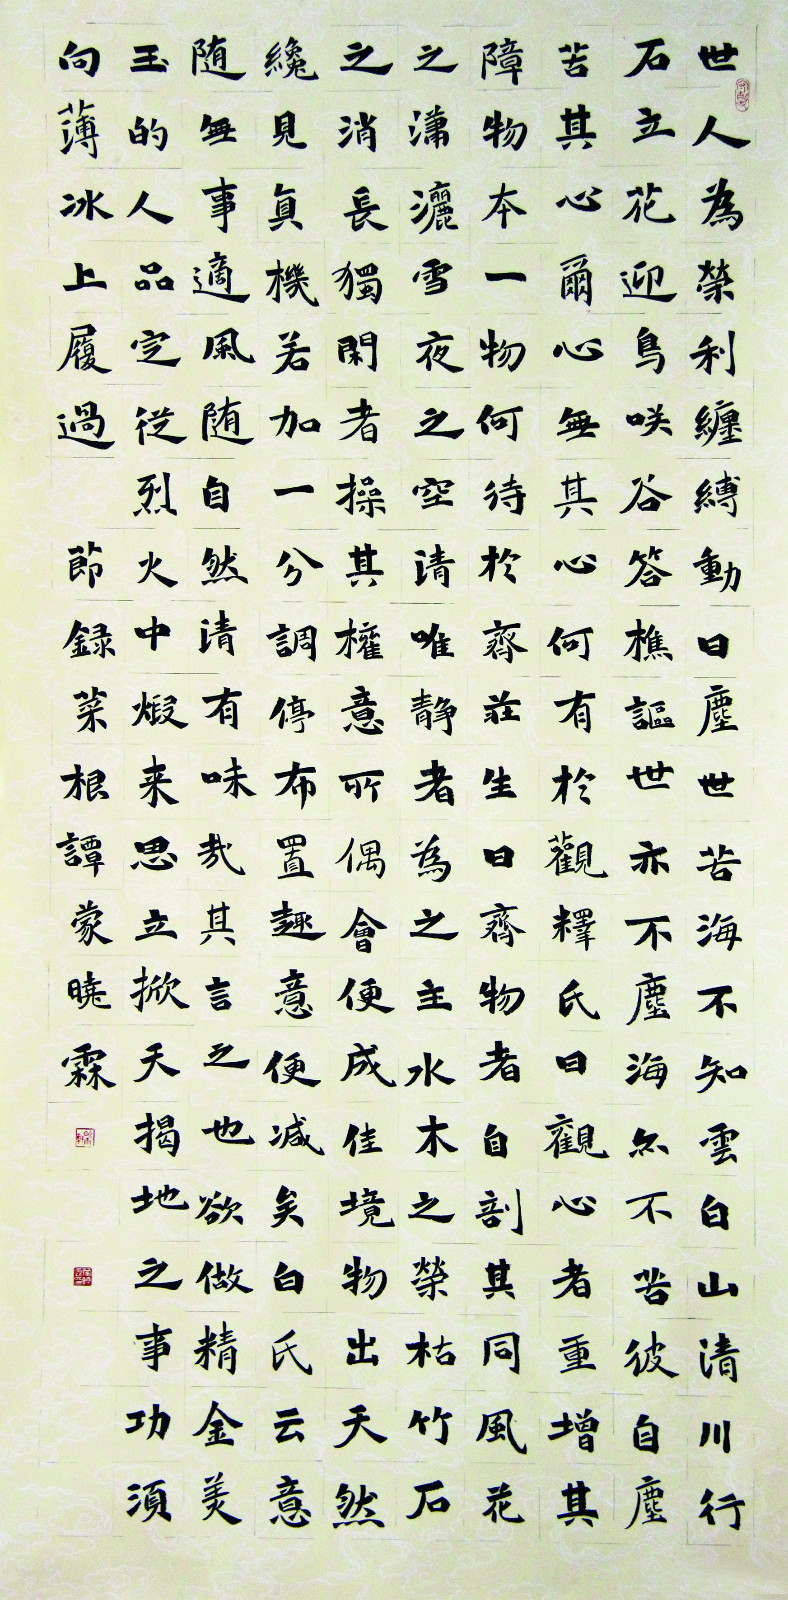 世人為榮利纏縛動曰塵世苦海不知雲白山清川行
石立花迎鳥咲谷答樵謳世亦不塵海亦不苦彼自塵
苦其心爾心無其心何有於觀釋氏曰觀心者重增其
障物本一物何待於齊莊生曰齊物者自剖其同風花
之瀟灑雪夜之空清唯静者為之主水木之榮枯竹石
之消長獨閑者操其權意所偶會便成佳境物出天然
纔見真機若加一分調停布置趣意便减矣白氏云意
随無事適風随自然清有味哉其言之也欲做精金美
玉的人品定從烈火中煅来思立掀天揭地之事功須
向薄冰上履過 節録菜根譚蒙曉霖